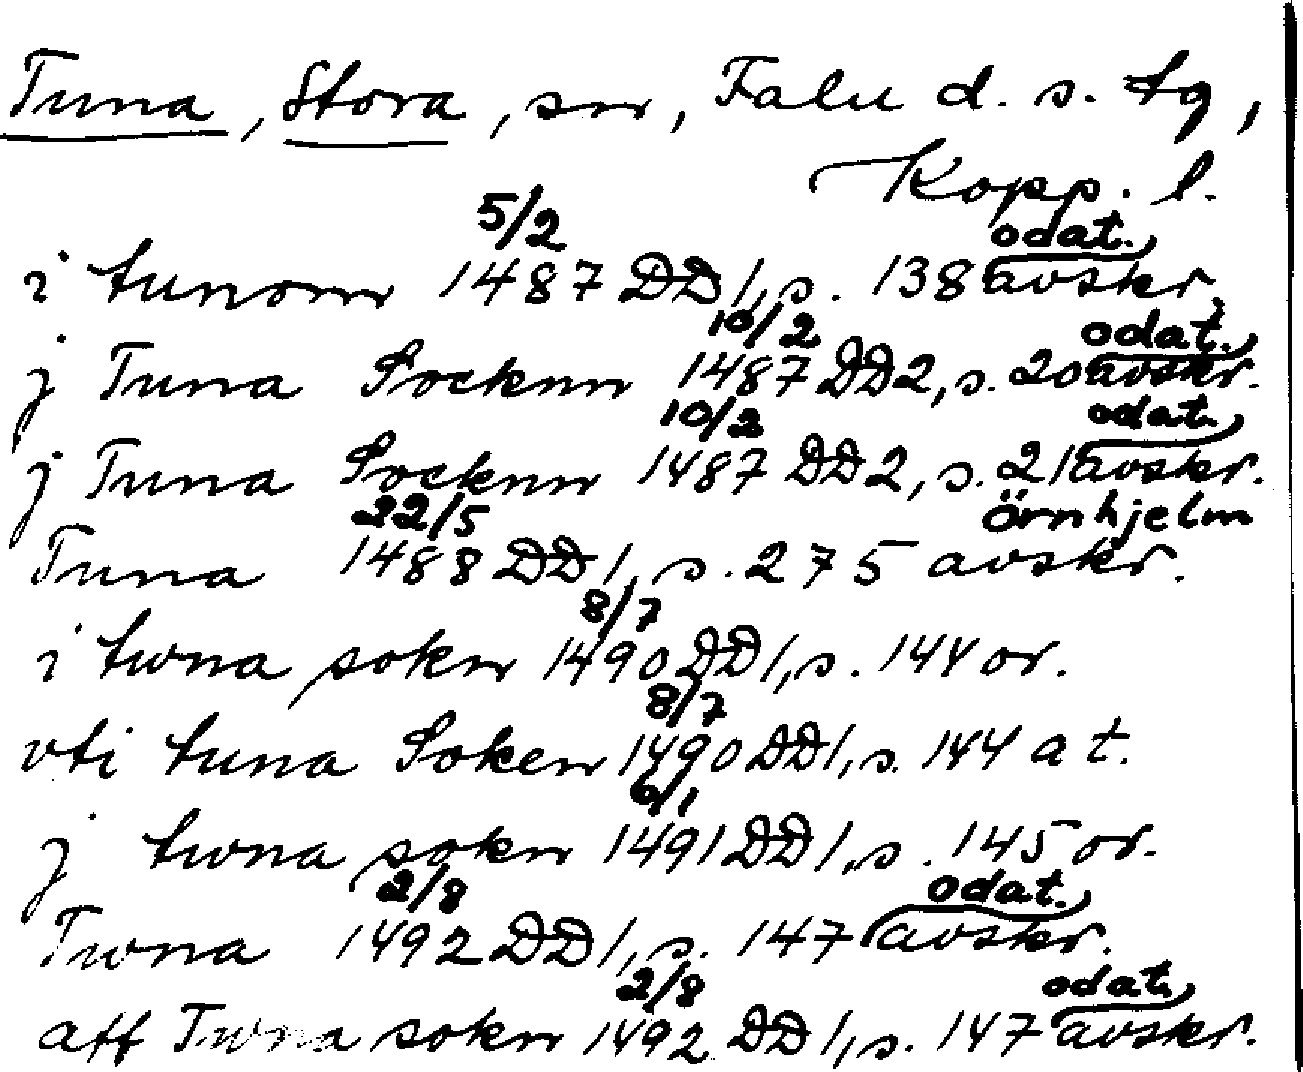 Tuna, Stora, sn, Falu d. s. tg,
Kopp. l.
i tunom 5/2 1487 DD 1, s. 138 odat. avskr.
j Tuna Socknn 10/2 1487 DD2, s. 20 odat. avskr.
j Tuna Socknn 10/2 1487 DD2, s. 21 odat. avskr.
Tuna 22/5 1488 DD 1, s. 275 örnhjelm avskr.
i twna sokn 8/7 1490 DD 1, s. 144 or.
vti tuna Soken 8/7 1490 DD 1, s. 144 a t.
j twna sokn 6/1 1491 DD 1, s. 145 or.
Twna 2/8 1492 DD 1, s. 147 odat. avskr.
aff Twna sokn 2/8 1492 DD 1, s. 147 odat. avskr.